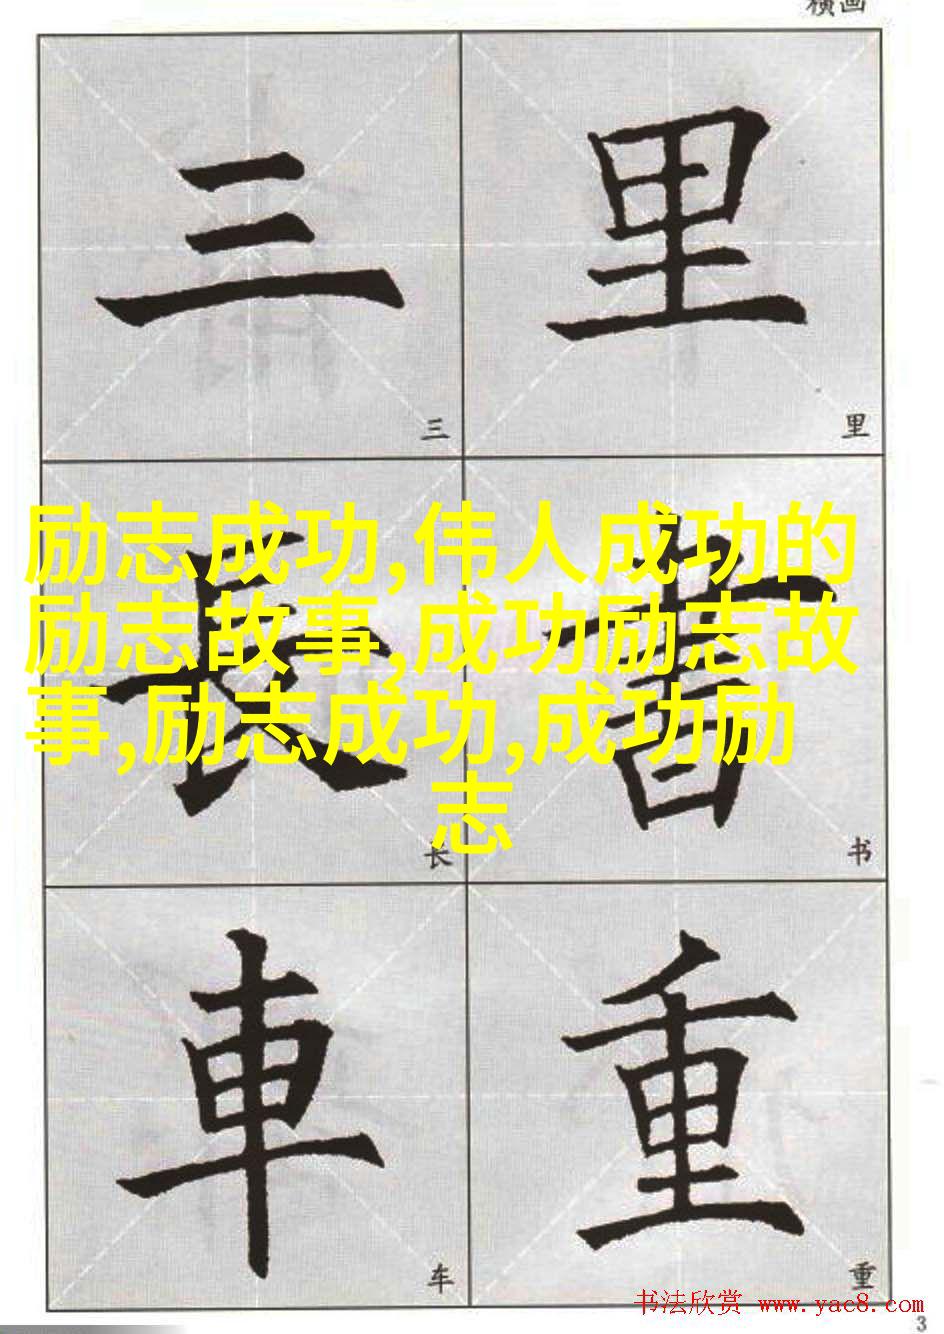 横画
三 里
三 里
長 書
励志成功,伟人成功的
励志故事,成功励志故
事,励志成功,成功励
志
长 书
車 重
车 重
书法欣赏 www.yac8.com
3